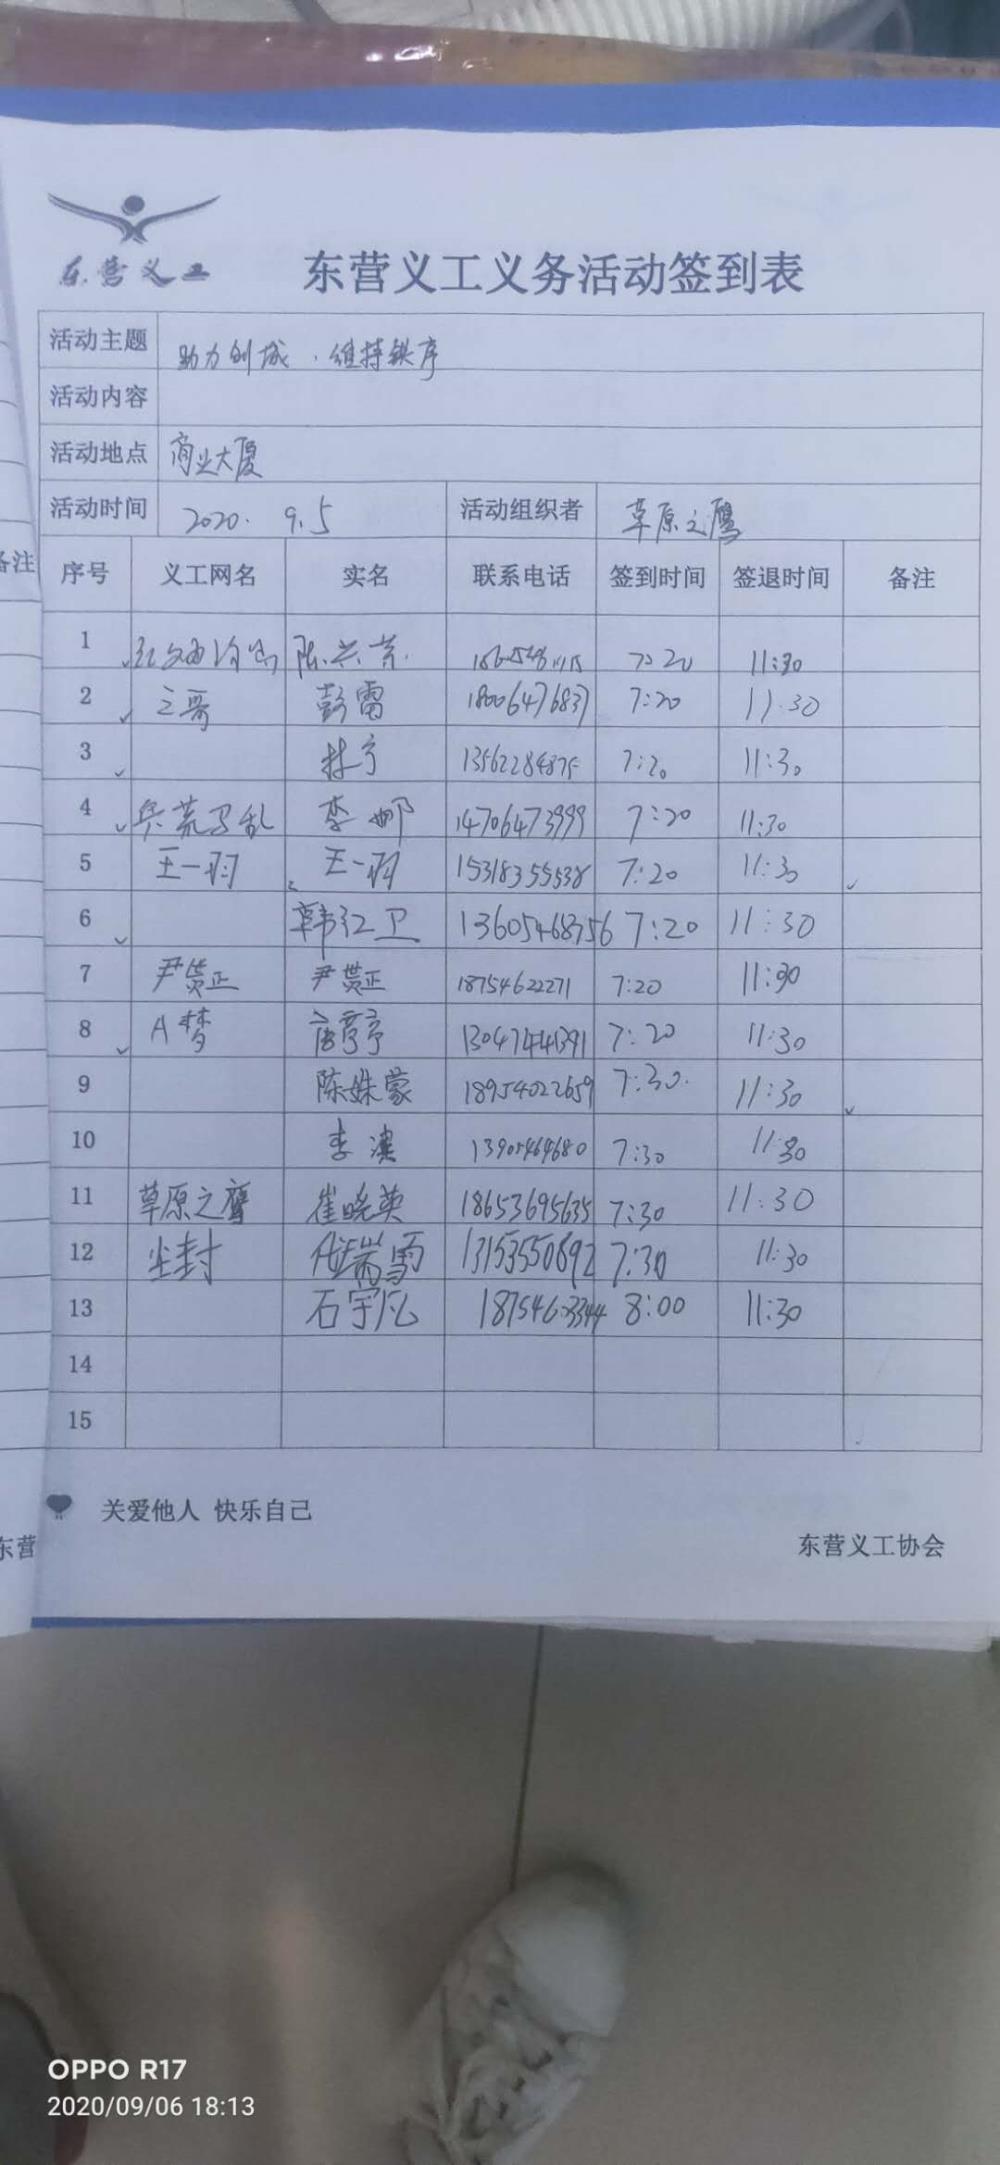 东营义工
东营义工义务活动签到表
活动主题 助力创城．维持秩序
活动内容
活动地点 商业大厦
活动时间 2020. 9.5 活动组织者 草原之鹰
备注
序号 义工网名 实名 联系电话 签到时间 签退时间 备注
1 陈兰芳 7:20 11:30
2 三哥 彭雷 18006476837 7:20 11:30
3 林宁 13562284875 7:20 11:30
4 兵荒马乱 李娜 14706473999 7:20 11:30
5 王一羽 王一羽 15318355538 7:20 11:30
6 韩红卫 13605468756 7:20 11:30
7 尹贤正 尹贤正 18754622271 7:20 11:30
8 A梦 13047444391 7:20 11:30
9 陈姝蒙 18954022659 7:30. 11:30
10 李 7:30 11:30
11 草原之鹰 崔晓英 18653695635 7:30 11:30
12 尘封 代瑞雪 13153550892 7:30 11:30
13 石宇凡 8:00 11:30
14
15
关爱他人 快乐自己
东营
东营义工协会
OPPO R17
2020/09/06 18:13